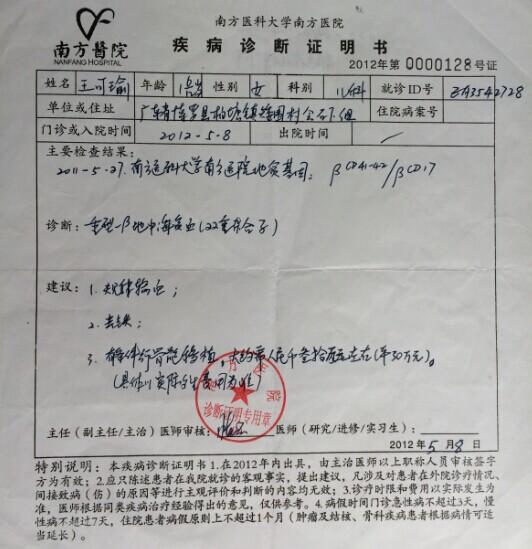 南方医科大学南方医院
南方醫院
NANFANG HOSPITAL
疾病诊断证明书
2012年第0000128号证
姓名 王可瑜 年龄 性别 女 科别 儿科 就诊ID号 3542728
单位或住址 广东省博罗县柏塘镇 村 下组 住院病案号
门诊或入院时间 2012-5-8 出院时间 /
主要检查结果:
2011-5-27.南方医科大学南方医院地贫基因: βCD41-42/βCD17
诊断: 重型-β地中海贫血(双重杂合子)
建议: 1.规律输血;
2.去铁;
3. 行骨髓移植,大约需人民币叁拾万元左右(¥30万)。
(具体以实际发生费用为准)
南方医院
诊断证明专用章
主任(副主任/主治)医师审核: 医师(研究/进修/实习生):
2012年5月8日
特别说明:本疾病诊断证明书1.在2012年内出具,由主治医师以上职称人员审核签字
方为有效;2.应只陈述患者在我院就诊的客观事实,提出建议,凡涉及对患者在外院诊疗情况、
间接致病(伤)的原因等进行主观评价和判断的内容均无效;3.诊疗时限和费用以实际发生为
准,医师根据同类疾病治疗经验得出的意见,仅供参考。4.病假时间门诊急性病不超过3天,慢
性病不超过7天,住院患者病假原则上不超过1个月(肿瘤及结核、骨科疾病患者根据病情可适
当延长)。